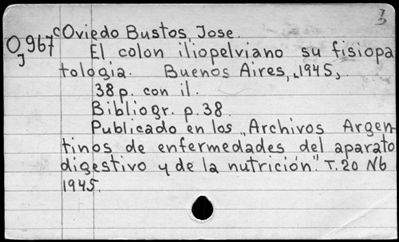 cOviedo Bustos, Jose.
O967
J
El colon iliopelviano su fisiopa
tologia. Buenos Aires, 1945,
38p. con il.
Bibliogr. p.38.
Publicado en los „Archivos Argen-
tinos de enfermedades del aparato
digestivo y de la nutrición". T.20 Nº6
1945.